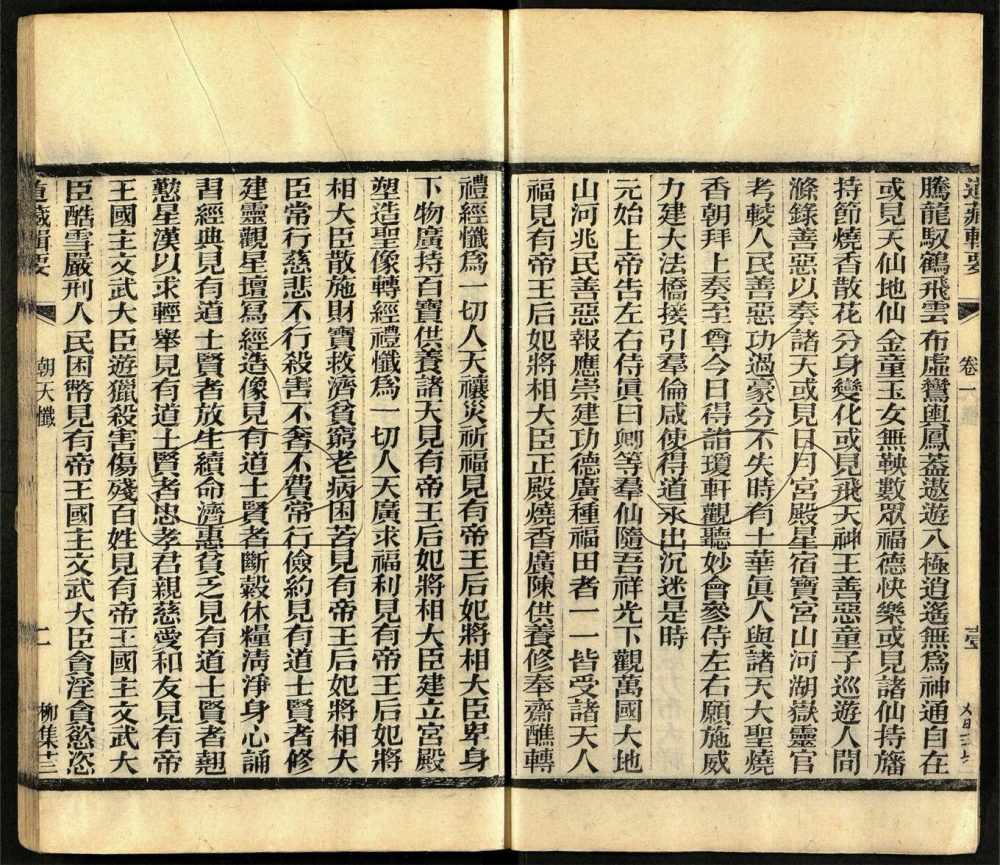 道藏輯要
卷一
騰龍馭鶴飛雲布虛鸞輿鳳蓋遨遊八極逍遙無爲神通自在
或見天仙地仙金童玉女無鞅數眾福德快樂或見諸仙持旛
持節燒香散花分身變化或見飛天神王善惡童子巡遊人間
滌錄善惡以奏諸天或見日月宮殿星宿寶宮山河湖嶽靈官
考較人民善惡功過豪分不失時有十華眞人與諸天大聖燒
香朝拜上奏至尊今日得詣瓊軒觀聽妙會參侍左右願施威
力建大法橋接引羣倫咸使得道永出沉迷是時
元始上帝告左右侍眞曰卿等羣仙隨吾祥光下觀萬國大地
山河兆民善惡報應崇建功德廣種福田者一一皆受諸天人
福見有帝王后妃將相大臣正殿燒香廣陳供養修奉齋醮轉
禮經懺爲一切人天禳災祈福見有帝王后妃將相大臣卑身
下物廣持百寶供養諸天見有帝王后妃將相大臣建立宮殿
塑造聖像轉經禮懺爲一切人天廣求福利見有帝王后妃將
相大臣散施財寶救濟貧窮老病困苦見有帝王后妃將相大
臣常行慈悲不行殺害不奢不費常行儉約見有道士賢者修
建靈觀星壇寫經造像見有道士賢者斷穀休糧淸淨身心誦
習經典見有道士賢者放生續命濟惠貧乏見有道士賢者翹
懃星漢以求輕舉見有道士賢者忠孝君親慈愛和友見有帝
王國主文武大臣遊獵殺害傷殘百姓見有帝王國主文武大
臣酷雪嚴刑人民困幣見有帝王國主文武大臣貪淫貪慾恣
道藏輯要
朝天懺
二
柳集三